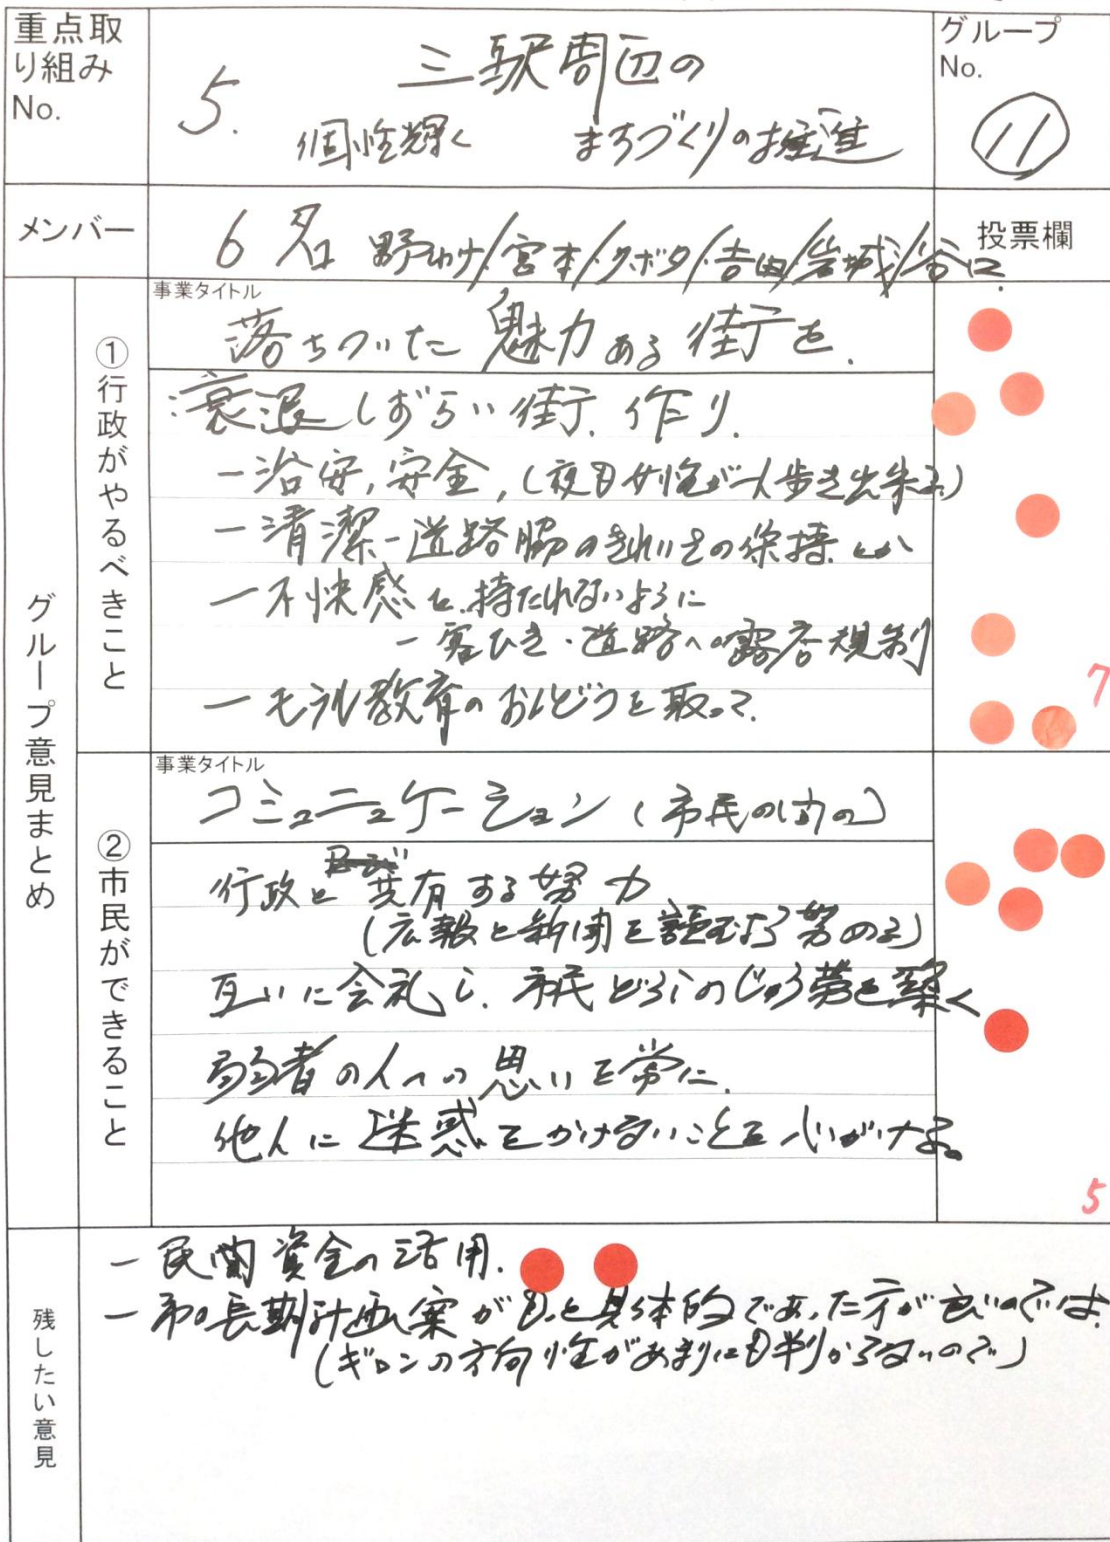 重点取り組みNo.
5. 三駅周辺の
個性輝く まちづくりの推進
グループNo.
⑪
メンバー
6名 野わけ/宮本/クボタ/吉田/岩城/谷口
投票欄
グループ意見まとめ
①行政がやるべきこと
事業タイトル
落ちついた魅力ある街を.
衰退しずらい街.作り.
ー治安,安全,(夜も女性が一人歩き出来る)
ー清潔ー道路脇のきれいさの保持とか
ー不快感を.持たれないように
ー客ひき・道路への露店規制
ーモラル教育のおんどうを取って.
7
②市民ができること
事業タイトル
コミュニュケーション(市民の方の)
行政と共有する努力
(広報と新聞を読むよう努める)
互いに会礼し.市民どうしの
を築く
弱者の人への思いを常に.
他人に迷惑をかけないことを心がける。
5
残したい意見
ー民間資金の活用.
ー市の長期計画案がもっと具体的であった方が良いのでは.
(ギロンの方向性があまりにも判からないので)